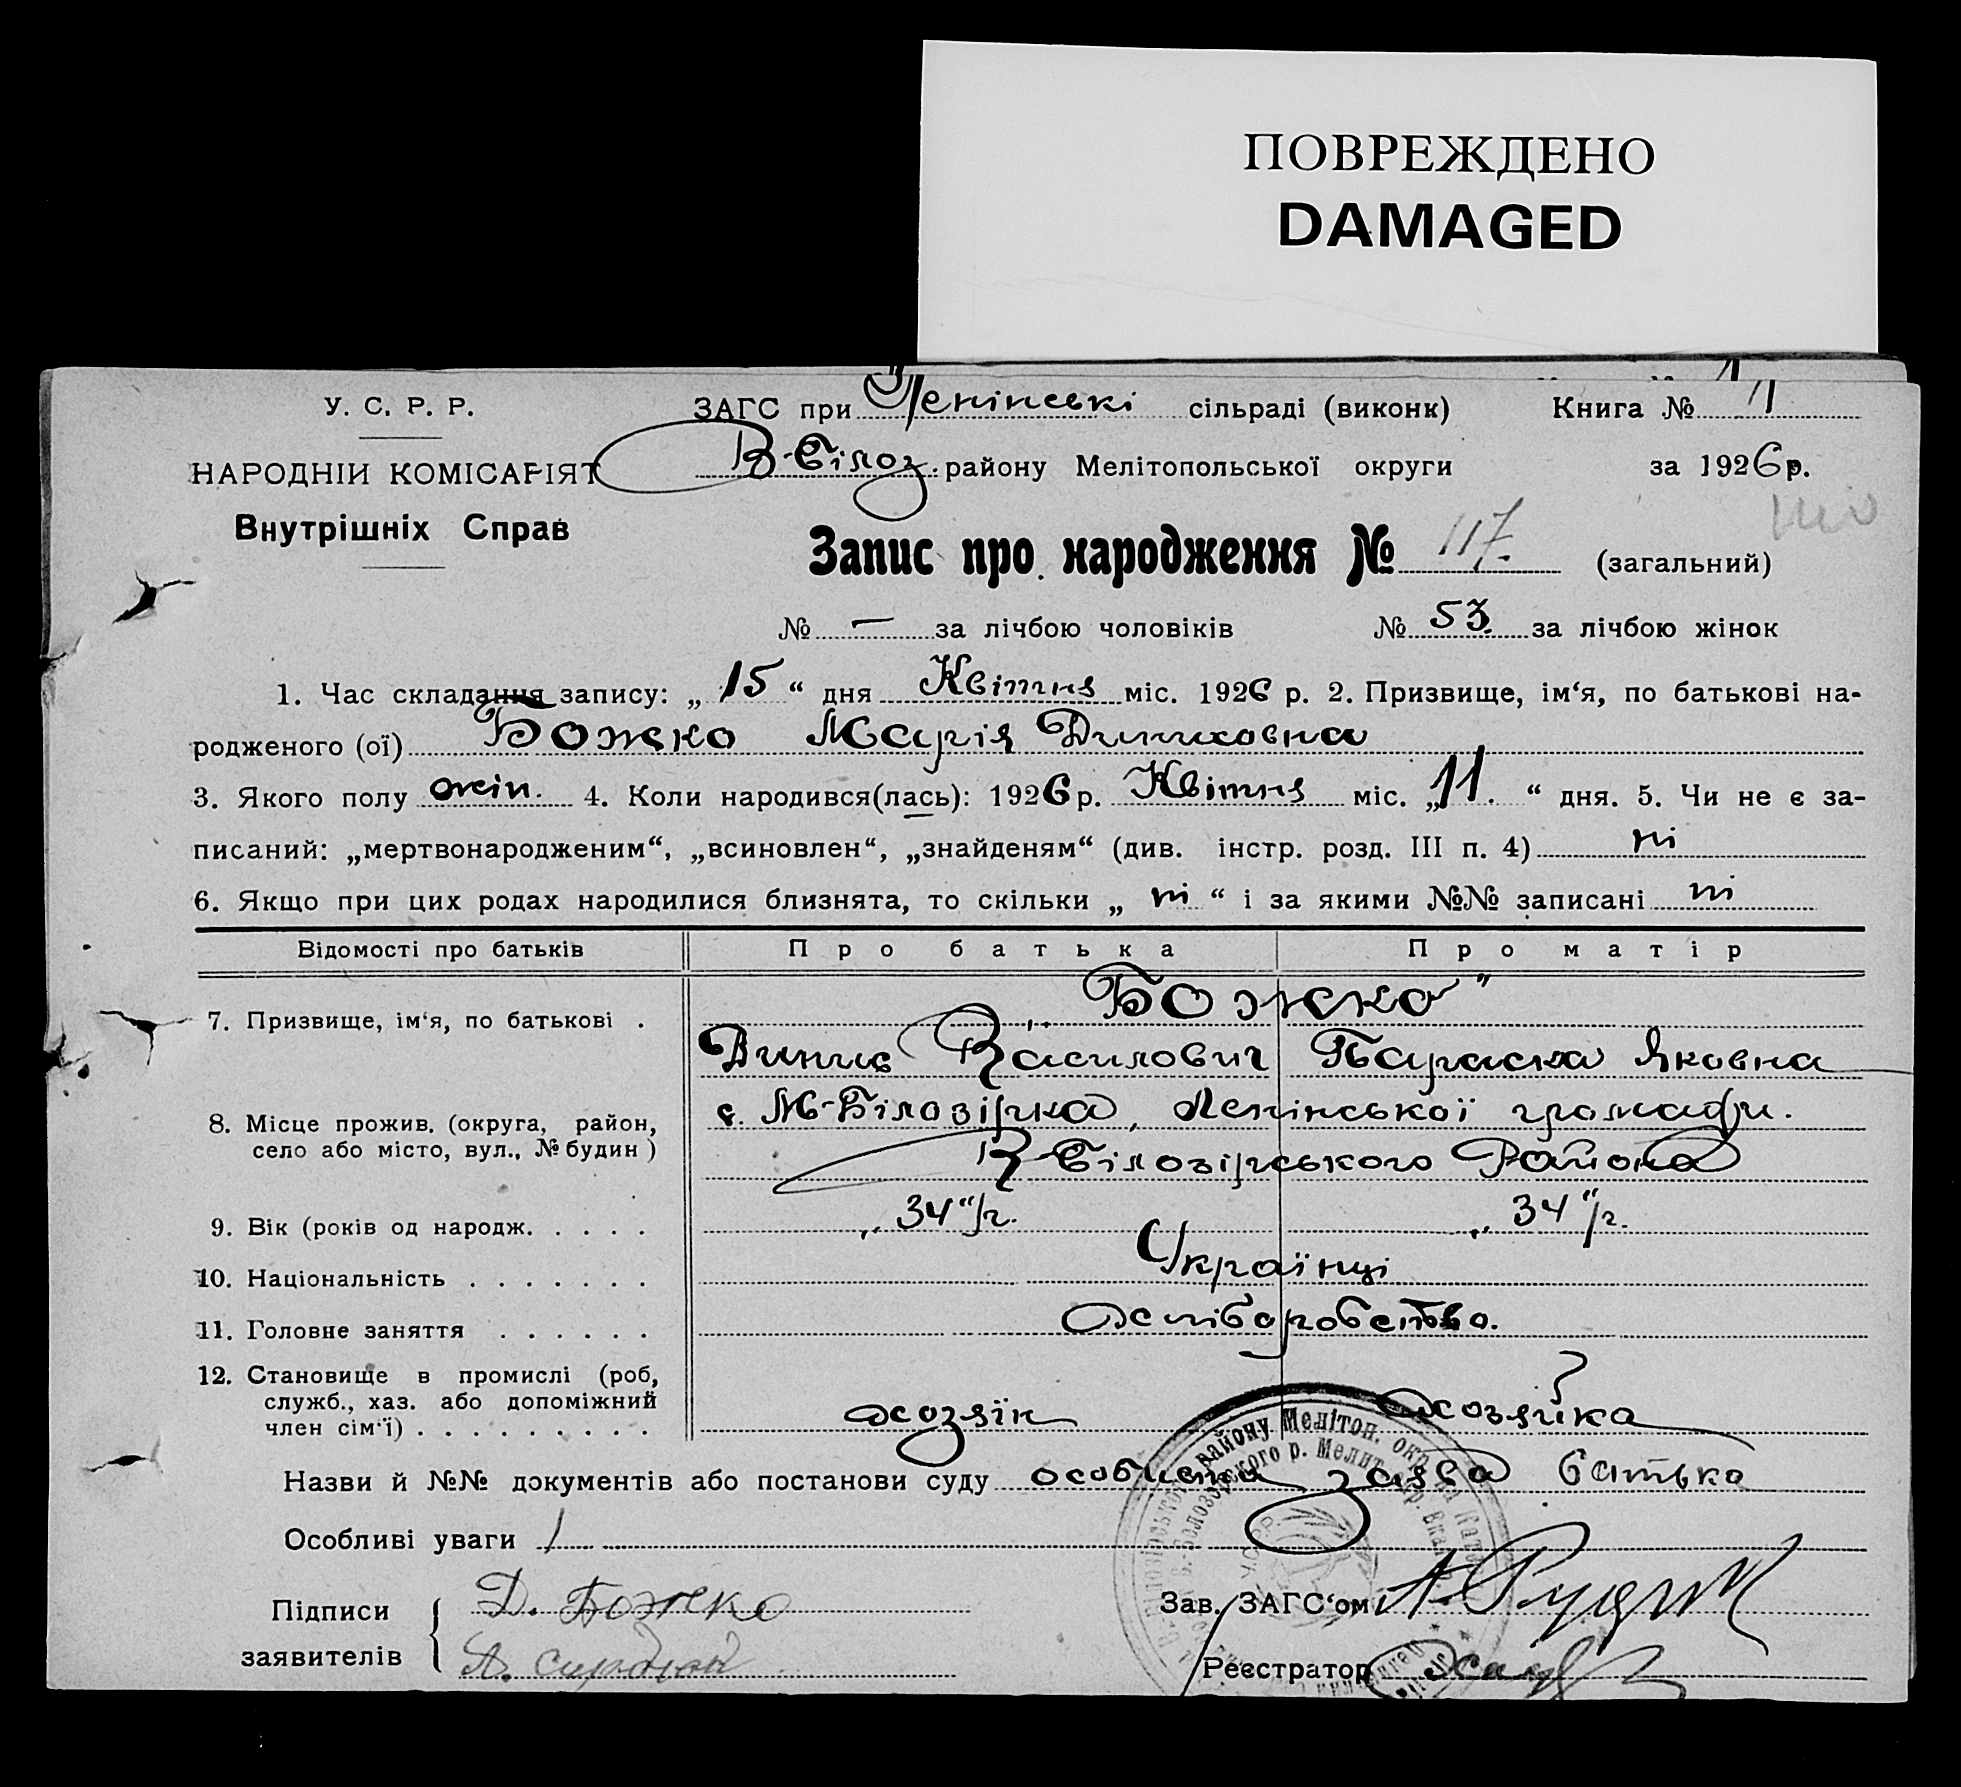 ПОВРЕЖДЕНО
DAMAGED
У. С. Р. Р.
ЗАГС при Ленінські сільраді (виконк) Книга № 11
НАРОДНІЙ КОМІСАРІЯТ
В-Білоз. району Мелітопольської округи за 1926 р.
Внутрішніх Справ
Запис про народження № 117. (загальний)
№ — за лічбою чоловіків № 53. за лічбою жінок
1. Час складання запису: „ 15 “ дня Квітня міс. 1926 р. 2. Призвище, ім‘я, по батькові на-
родженого (ої) Божко Марія Динисовна
3. Якого полу жін. 4. Коли народився(лась): 1926 р. Квітня міс. „ 11. “ дня. 5. Чи не є за-
писаний: „мертвонародженим“, „всиновлен“, „знайденям“ (див. інстр. розд. III п. 4) ні
6. Якщо при цих родах народилися близнята, то скільки „ ні “ і за якими №№ записані ні
Відомості про батьків Про батька Про матір
7. Призвище, ім‘я, по батькові . „Божко“
Динис Василович Параска Яковна
8. Місце прожив. (округа, район, село або місто, вул., № будин) с. М-Білозірка, Ленінської громади.
В-Білозірського Района
9. Вік (років од народж. . . . . „34“/г. „34“/г.
10. Національність . . . . . . . Українці
11. Головне заняття . . . . . . Хліборобство.
12. Становище в промислі (роб, служб., хаз. або допоміжний член сім‘ї) . . . . . . . . . хозяїн хозяйка
Назви й №№ документів або постанови суду особиста заява батька
Особливі уваги /
Підписи заявителів Д. Божко
Зав. ЗАГС‘ом
Реєстратор